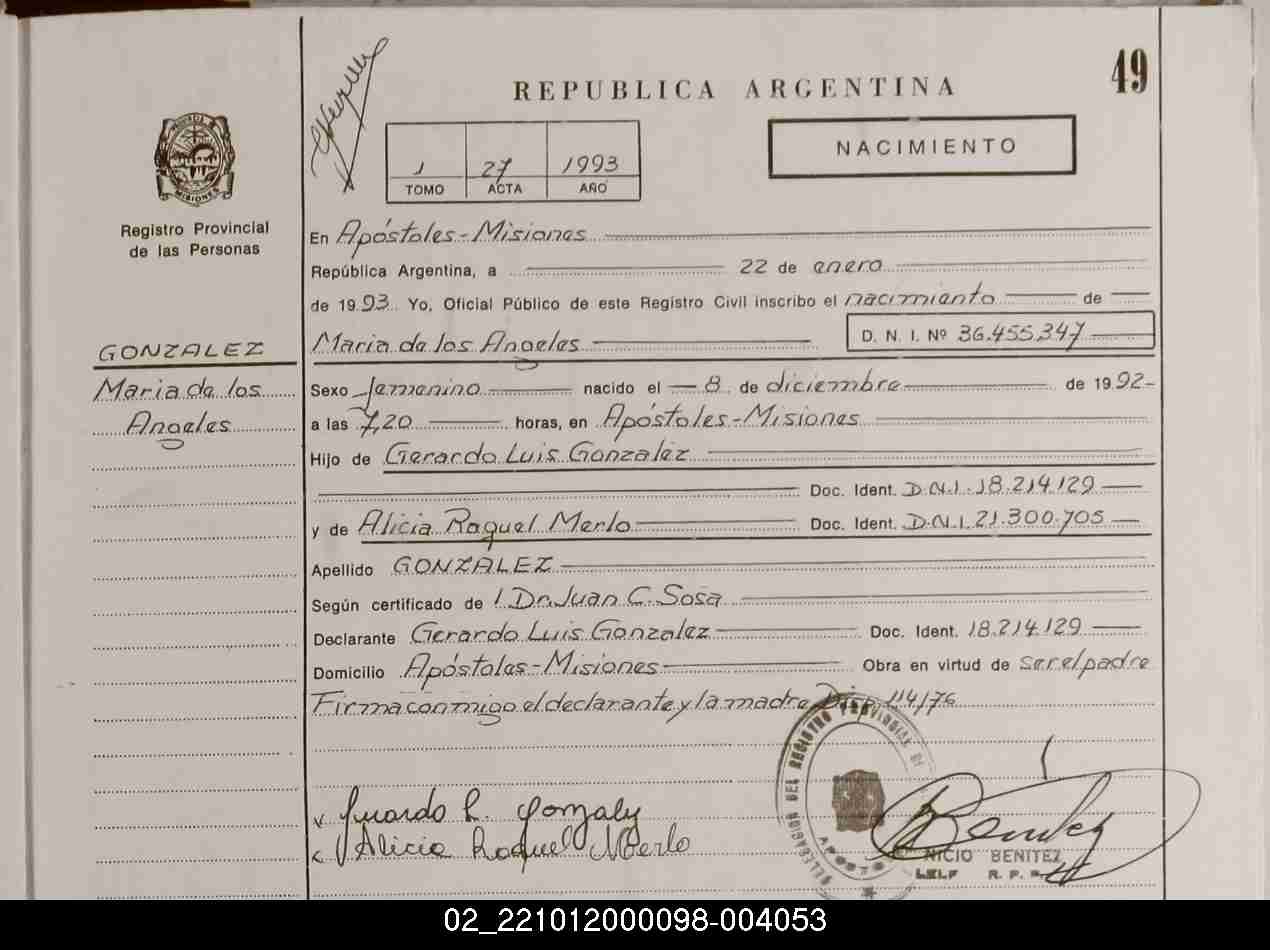 49
REPUBLICA ARGENTINA
NACIMIENTO
1 27 1993
TOMO ACTA AÑO
MISIONES
Registro Provincial
de las Personas
GONZALEZ
Maria de los
Angeles
En Apóstoles - Misiones
República Argentina, a 22 de enero
de 1993 Yo, Oficial Público de este Registro Civil inscribo el nacimiento de
Maria de los Angeles D. N. I. Nº 36.455.347
Sexo femenino nacido el 8 de diciembre de 1992
a las 7,20 horas, en Apóstoles - Misiones
Hijo de Gerardo Luis Gonzalez
Doc. Ident. D.N.I. 18.214.129
y de Alicia Raquel Merlo Doc. Ident. D.N.I. 21.300.705
Apellido GONZALEZ
Según certificado de l Dr. Juan C. Sosa
Declarante Gerardo Luis Gonzalez Doc. Ident. 18.214.129
Domicilio Apóstoles - Misiones Obra en virtud de ser el padre
Firma conmigo el declarante y la madre Disp. 114/76
DELEGACION DEL REGISTRO PROVINCIAL DE
Gerardo L. Gonzalez
Alicia Raquel Merlo
Benitez
NICIO BENITEZ
R. P.
02_221012000098-004053